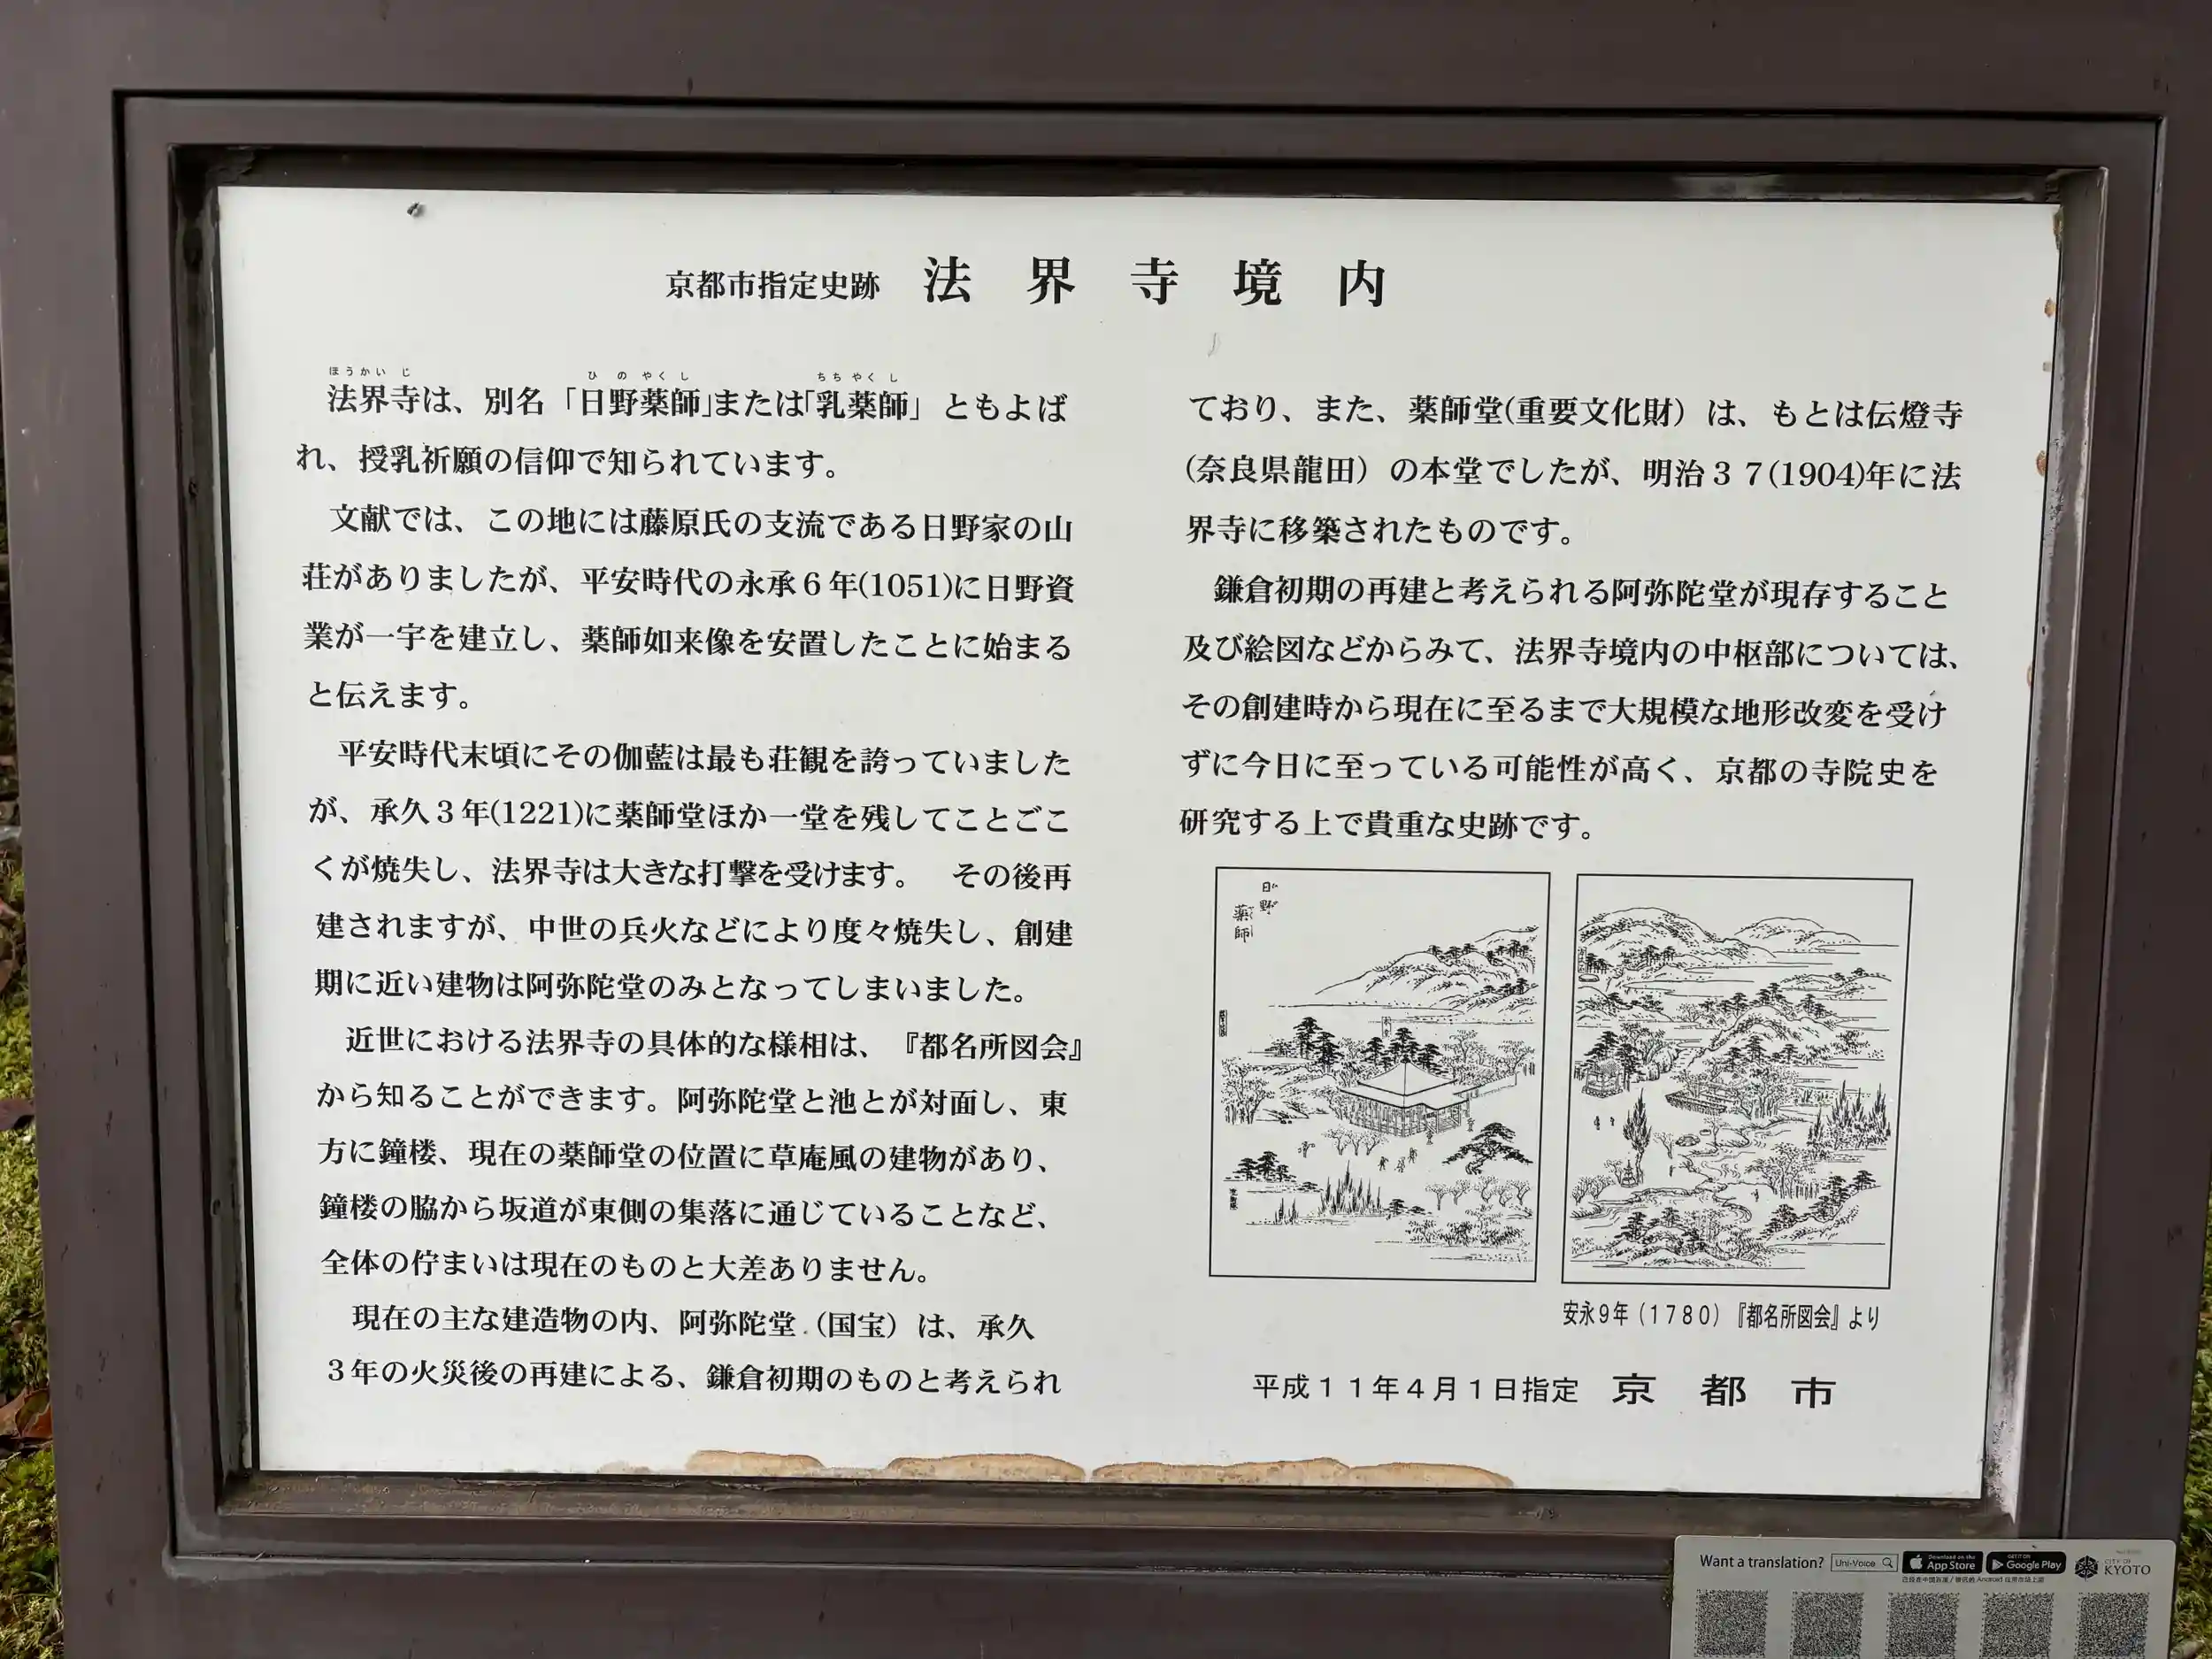 京都市指定史跡 法界寺境内
ほうかいじ ひのやくし ちちやくし
法界寺は、別名「日野薬師」または「乳薬師」ともよば
れ、授乳祈願の信仰で知られています。
文献では、この地には藤原氏の支流である日野家の山
荘がありましたが、平安時代の永承6年(1051)に日野資
業が一宇を建立し、薬師如来像を安置したことに始まる
と伝えます。
平安時代末頃にその伽藍は最も荘観を誇っていました
が、承久3年(1221)に薬師堂ほか一堂を残してことごこ
くが焼失し、法界寺は大きな打撃を受けます。 その後再
建されますが、中世の兵火などにより度々焼失し、創建
期に近い建物は阿弥陀堂のみとなってしまいました。
近世における法界寺の具体的な様相は、『都名所図会』
から知ることができます。阿弥陀堂と池とが対面し、東
方に鐘楼、現在の薬師堂の位置に草庵風の建物があり、
鐘楼の脇から坂道が東側の集落に通じていることなど、
全体の佇まいは現在のものと大差ありません。
現在の主な建造物の内、阿弥陀堂(国宝)は、承久
3年の火災後の再建による、鎌倉初期のものと考えられ
ており、また、薬師堂(重要文化財)は、もとは伝燈寺
(奈良県龍田)の本堂でしたが、明治37(1904)年に法
界寺に移築されたものです。
鎌倉初期の再建と考えられる阿弥陀堂が現存すること
及び絵図などからみて、法界寺境内の中枢部については、
その創建時から現在に至るまで大規模な地形改変を受け
ずに今日に至っている可能性が高く、京都の寺院史を
研究する上で貴重な史跡です。
日野
薬師
安永9年(1780)『都名所図会』より
平成11年4月1日指定 京都市
Want a translation? Uni-Voice Download on the App Store GET IT ON Google Play CITY OF KYOTO